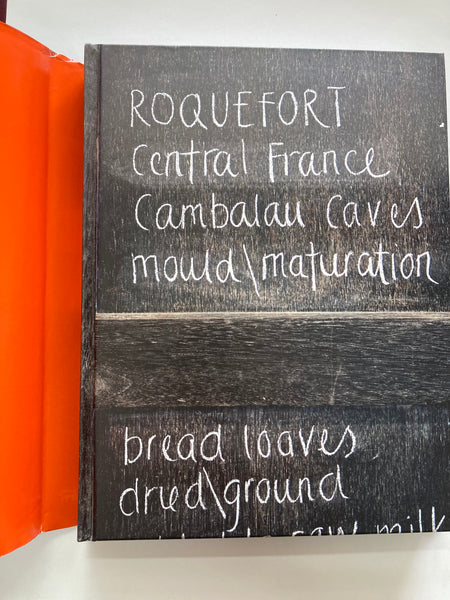 ROQUEFORT
Central France
Cambalau Caves
mould\maturation
bread loaves
dried\ground
raw milk